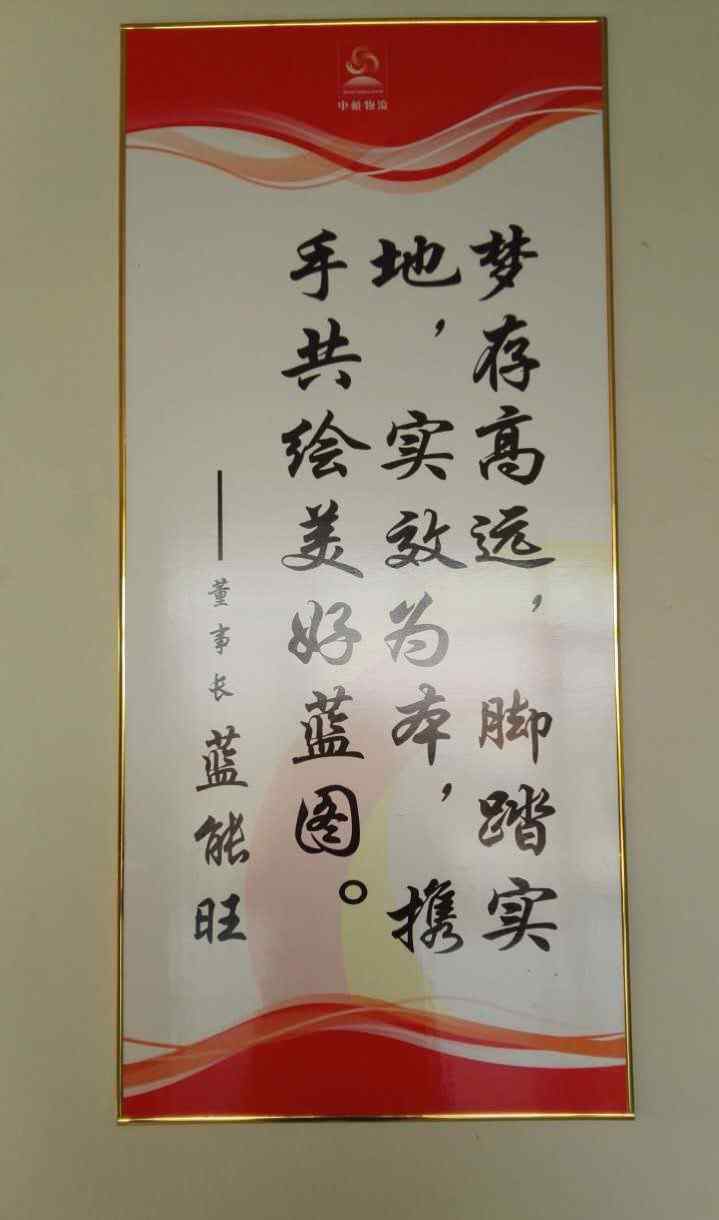 中植物流
梦存高远，脚踏实
地，实效为本，携
手共绘美好蓝图。
——董事长 蓝能旺